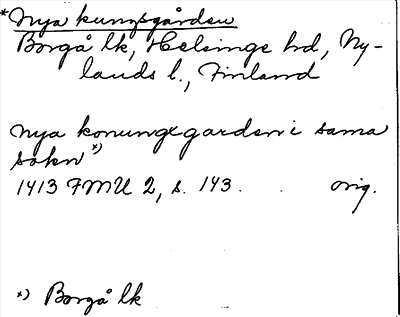 *Nya kungsgården
Borgå lk, Helsinge hd, Ny-
lands l., Finland
nya konungxgarden i sama
sokn *)
1413 FMU 2, s. 143. . orig.
*) Borgå lk